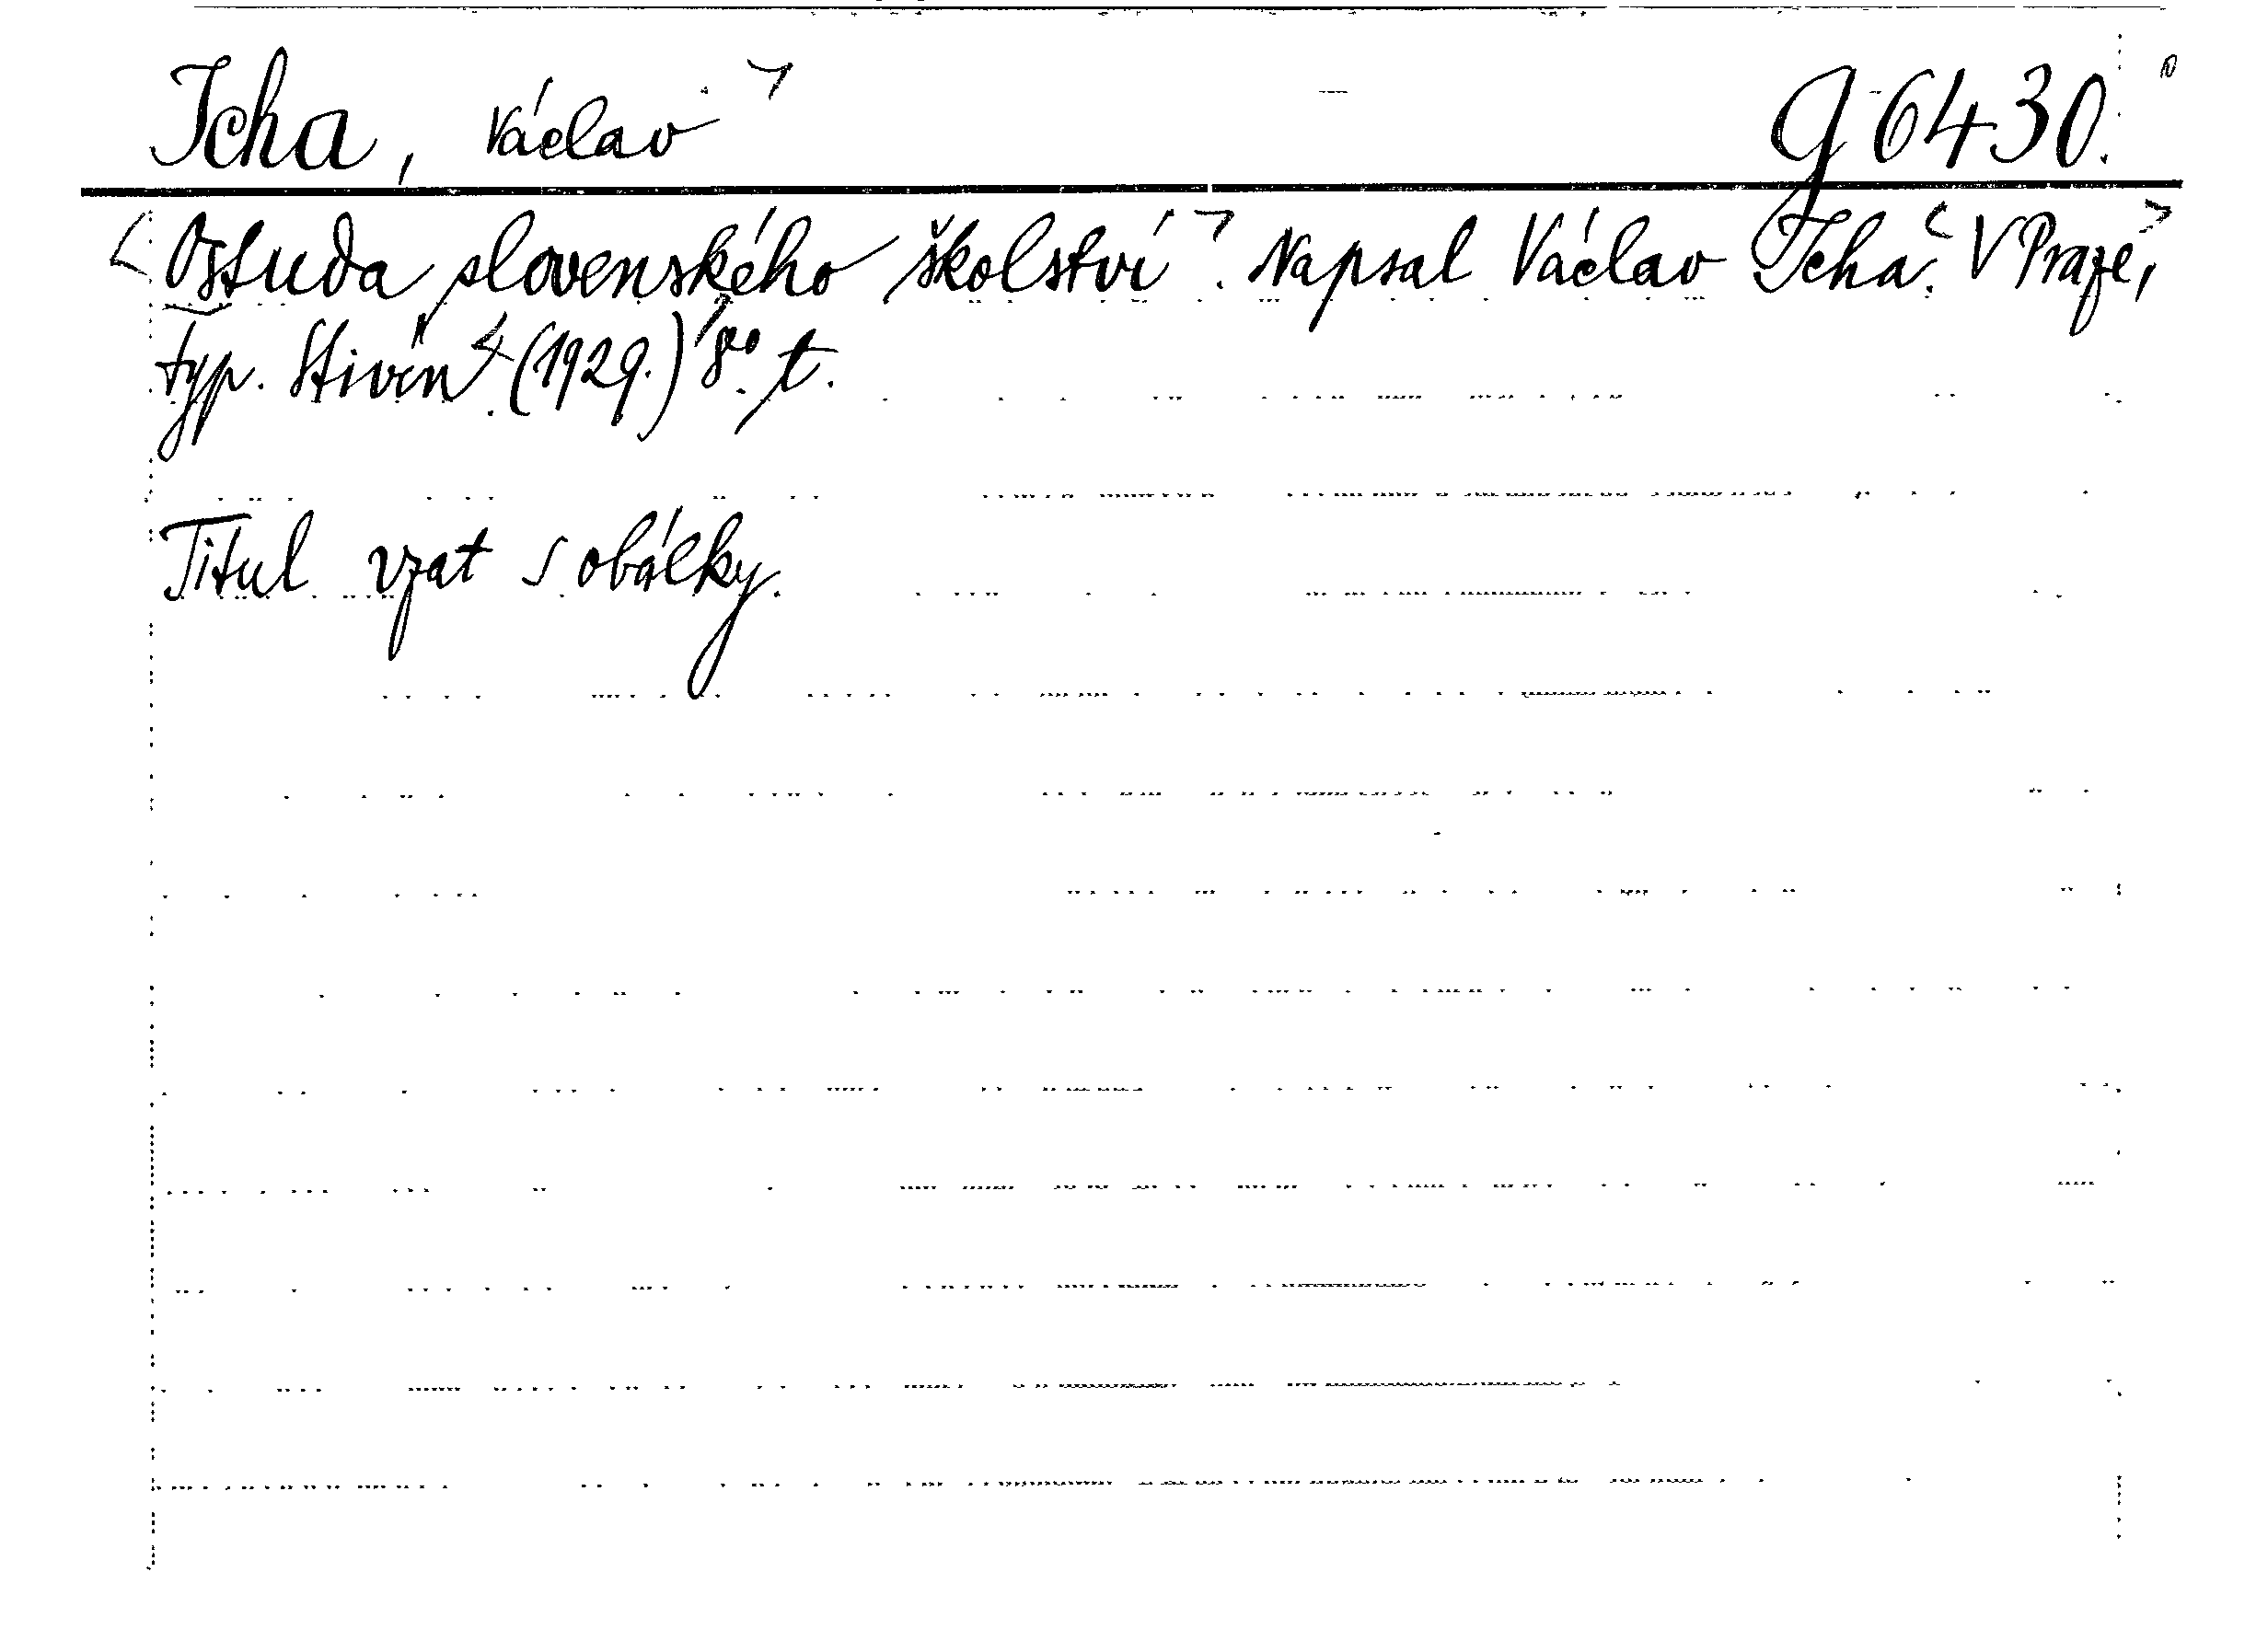 Icha, Václav g 6430.
Ostuda slovenského školství. Napsal Václav Icha. V Praze,
typ. Stivín (1929.) 8° t.
Titul vzat s obálky.